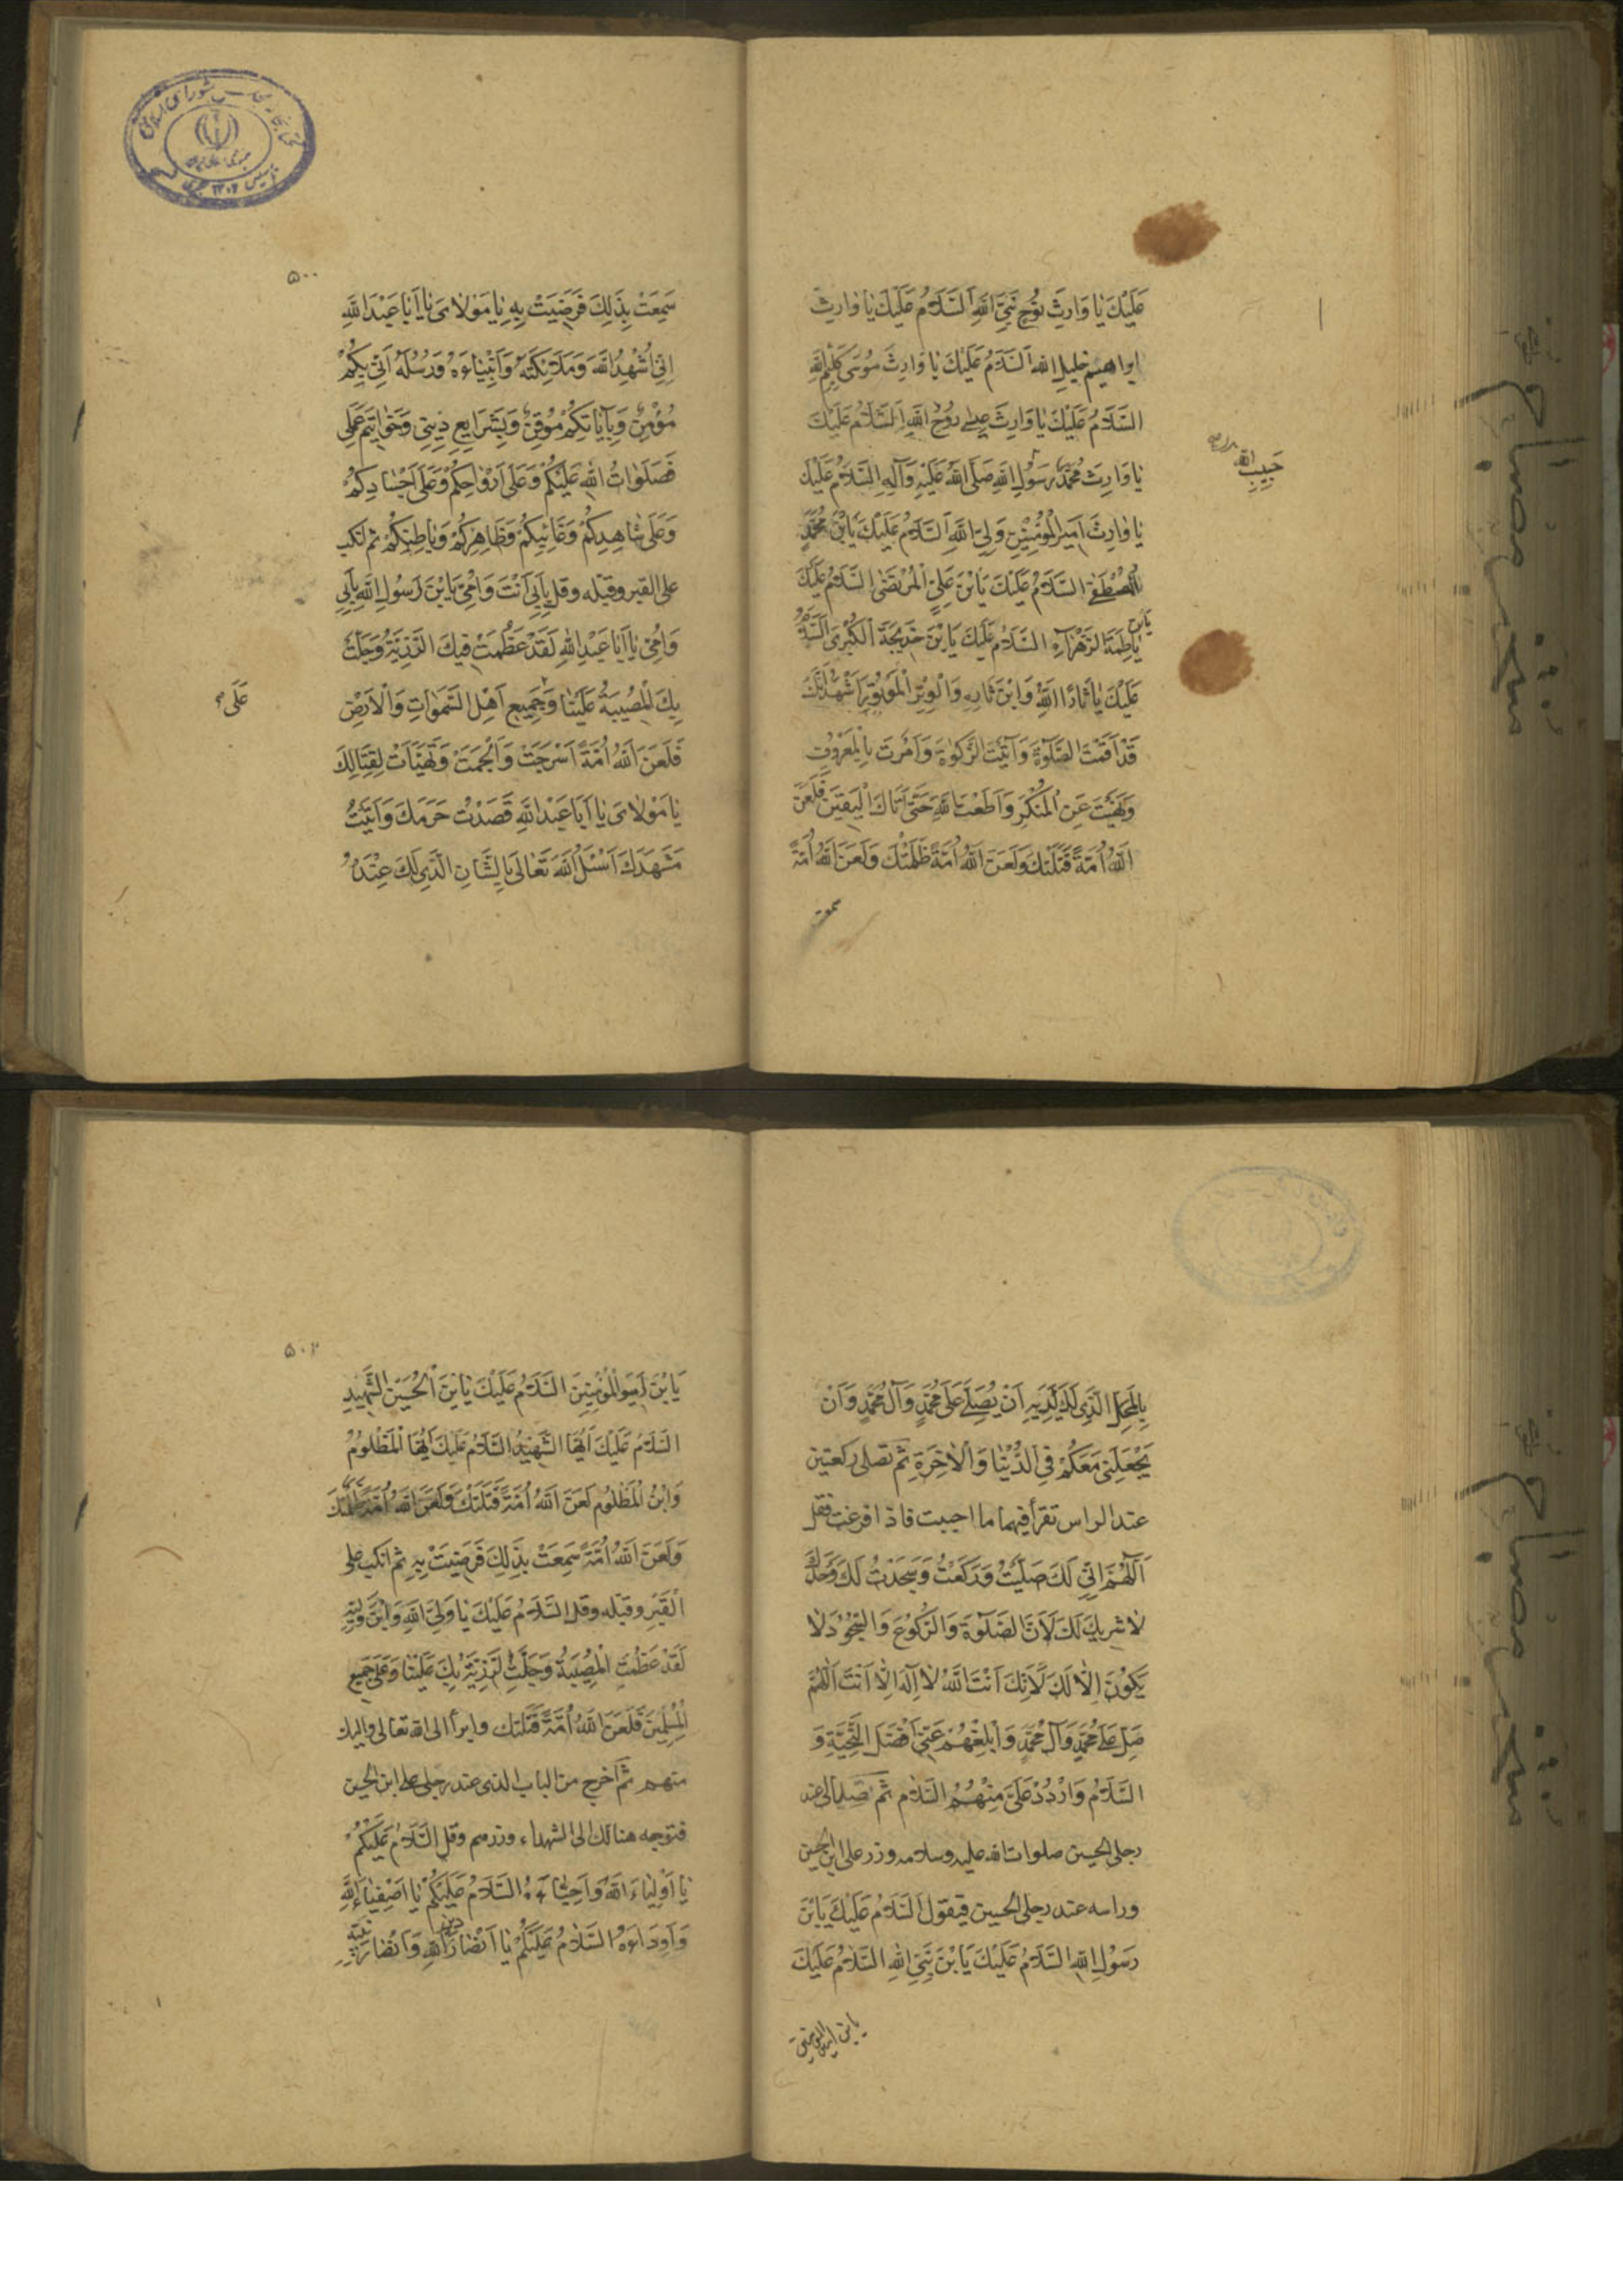 عَلَيْكَ يَا وَارِثَ نُوحٍ نَبِيِّ اللهِ اَلسَّلَامُ عَلَيْكَ يَا وَارِثَ
ابراهيم خليلِ الله اَلسَّلَامُ عَلَيْكَ يَا وَارِثَ مُوسَى كَلِيمِ اللهِ
السَّلَامُ عَلَيْكَ يَا وَارِثَ عِيسى رُوحِ اللهِ اَلسَّلَامُ عَلَيْكَ
يَا وَارِثَ مُحَمَّدٍ رَسُولِ اللهِ صَلَّى اللهُ عَلَيْهِ وَآلِهِ السَّلَامُ عَلَيْكَ
حَبِيبِ الله
يَا وَارِثَ اَمِيرِ الْمُؤْمِنِينَ وَلِيِّ اللهِ اَلسَّلَامُ عَلَيْكَ يَا بْنَ مُحَمَّدٍ
الْمُصْطَفى السَّلَامُ عَلَيْكَ يَا بْنَ عَلِيٍّ الْمُرْتَضى السَّلَامُ عَلَيْكَ
يَا بْنَ فَاطِمَةَ الزَّهْرَاءِ السَّلَامُ عَلَيْكَ يَا بْنَ خَدِيجَةَ الْكُبْرى اَلسَّلَامُ
عَلَيْكَ يَا ثَارَ اللهِ وَابْنَ ثَارِهِ وَالْوِتْرَ الْمَوْتُورَ اَشْهَدُ اَنَّكَ
قَدْ اَقَمْتَ الصَّلوةَ وَآتَيْتَ الزَّكوةَ وَاَمَرْتَ بِالْمَعْرُوفِ
وَنَهَيْتَ عَنِ الْمُنْكَرِ وَاَطَعْتَ اللهَ حَتّى اَتَاكَ الْيَقِينُ فَلَعَنَ
اللهُ اُمَّةً قَتَلَتْكَ وَلَعَنَ اللهُ اُمَّةً ظَلَمَتْكَ وَلَعَنَ اللهُ اُمَّةً
سمعت
۵۰۰
سَمِعَتْ بِذلِكَ فَرَضِيَتْ بِهِ يَا مَوْلَاىَ يَا اَبَا عَبْدِ اللهِ
اِنِّي اُشْهِدُ اللهَ وَمَلَائِكَتَهُ وَاَنْبِيَاءَهُ وَرُسُلَهُ اَنِّي بِكُمْ
مُؤْمِنٌ وَبِاِيَابِكُمْ مُوقِنٌ وَبِشَرَايِعِ دِينِي وَخَوَاتِيمِ عَمَلِي
فَصَلَوَاتُ اللهِ عَلَيْكُمْ وَعَلَى اَرْوَاحِكُمْ وَعَلَى اَجْسَادِكُمْ
وَعَلَى شَاهِدِكُمْ وَغَائِبِكُمْ وَظَاهِرِكُمْ وَبَاطِنِكُمْ ثم انكب
على القبر وقبله وقل بِاَبِي اَنْتَ وَاُمِّي يَا بْنَ رَسُولِ اللهِ بِاَبِي
وَاُمِّي يَا اَبَا عَبْدِ اللهِ لَقَدْ عَظُمَتْ فِيكَ الرَّزِيَّةُ وَجَلَّتْ
بِكَ الْمُصِيبَةُ عَلَيْنَا وَجَمِيعِ اَهْلِ السَّموَاتِ وَالْاَرْضِ
عَلَى
فَلَعَنَ اللهُ اُمَّةً اَسْرَجَتْ وَاَلْجَمَتْ وَتَهَيَّأَتْ لِقِتَالِكَ
يَا مَوْلَاىَ يَا اَبَا عَبْدِ اللهِ قَصَدْتُ حَرَمَكَ وَاَتَيْتُ
مَشْهَدَكَ اَسْئَلُ اللهَ تَعَالَى بِالشَّانِ الَّذِي لَكَ عِنْدَهُ
بِالْمَحَلِّ الَّذِي لَكَ لَدَيْهِ اَنْ يُصَلِّيَ عَلَى مُحَمَّدٍ وَآلِ مُحَمَّدٍ وَاَنْ
يَجْعَلَنِي مَعَكُمْ فِي الدُّنْيَا وَالْاخِرَةِ ثم تصلى ركعتين
عند الراس تقرأ فيهما ما احببت فاذا فرغت فقل
اَللّهُمَّ اِنِّي لَكَ صَلَّيْتُ وَرَكَعْتُ وَسَجَدْتُ لَكَ وَحْدَكَ
لَا شَرِيكَ لَكَ لِاَنَّ الصَّلوةَ وَالرُّكُوعَ وَالسُّجُودَ لَا
يَكُونُ اِلَّا لَكَ لِاَنَّكَ اَنْتَ اللهُ لَا اِلهَ اِلَّا اَنْتَ اَللّهُمَّ
صَلِّ عَلَى مُحَمَّدٍ وَآلِ مُحَمَّدٍ وَاَبْلِغْهُمْ عَنِّي اَفْضَلَ التَّحِيَّةِ وَ
السَّلَامِ وَارْدُدْ عَلَيَّ مِنْهُمُ السَّلَامَ ثم صر الى عند
رجلى الحسين صلوات الله عليه وسلامه وزر على ابن الحسين
وراسه عند رجلى الحسين فيقول اَلسَّلَامُ عَلَيْكَ يَا بْنَ
رَسُولِ اللهِ السَّلَامُ عَلَيْكَ يَا بْنَ نَبِيِّ اللهِ السَّلَامُ عَلَيْكَ
يا بن اميرالمؤمنين
۵۰۲
يَا بْنَ اَمِيرِ الْمُؤْمِنِينَ السَّلَامُ عَلَيْكَ يَا بْنَ الْحُسَيْنِ الشَّهِيدِ
السَّلَامُ عَلَيْكَ اَيُّهَا الشَّهِيدُ السَّلَامُ عَلَيْكَ اَيُّهَا الْمَظْلُومُ
وَابْنُ الْمَظْلُومِ لَعَنَ اللهُ اُمَّةً قَتَلَتْكَ وَلَعَنَ اللهُ اُمَّةً ظَلَمَتْكَ
وَلَعَنَ اللهُ اُمَّةً سَمِعَتْ بِذلِكَ فَرَضِيَتْ بِهِ ثم انكب على
الْقَبْرِ وقبله وقل السَّلَامُ عَلَيْكَ يَا وَلِيَّ اللهِ وَابْنَ وَلِيِّهِ
لَقَدْ عَظُمَتِ الْمُصِيبَةُ وَجَلَّتِ الرَّزِيَّةُ بِكَ عَلَيْنَا وَعَلَى جَمِيعِ
الْمُسْلِمِينَ فَلَعَنَ اللهُ اُمَّةً قَتَلَتْكَ وابرأ الى الله تعالى واليك
منهم ثم اخرج من الباب الذى عند رجلى على ابن الحسين
فتوجه هنالك الى الشهداء وزرهم وقل اَلسَّلَامُ عَلَيْكُمْ
يَا اَوْلِيَاءَ اللهِ وَاَحِبَّاءَهُ السَّلَامُ عَلَيْكُمْ يَا اَصْفِيَاءَ اللهِ
وَاَوِدَّاءَهُ السَّلَامُ عَلَيْكُمْ يَا اَنْصَارَ دين اللهِ وَاَنْصَارَ نبيه